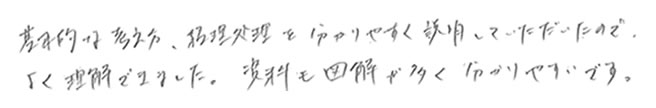 基本的な考え方、経理処理を分かりやすく説明していただいたので、
よく理解できました。資料も図解が多く分かりやすいです。